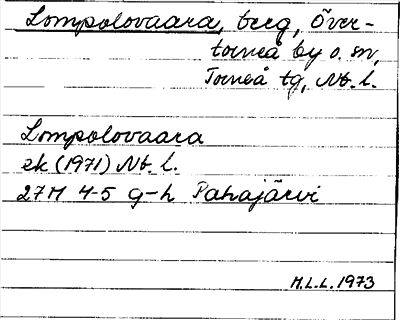 Lompolovaara, berg, Över-
torneå by o. sn,
Torneå tg, Nb. l.
Lompolovaara
ek (1971) Nb. l.
27M 4-5 g-h Pahajärvi
M.L.L. 1973